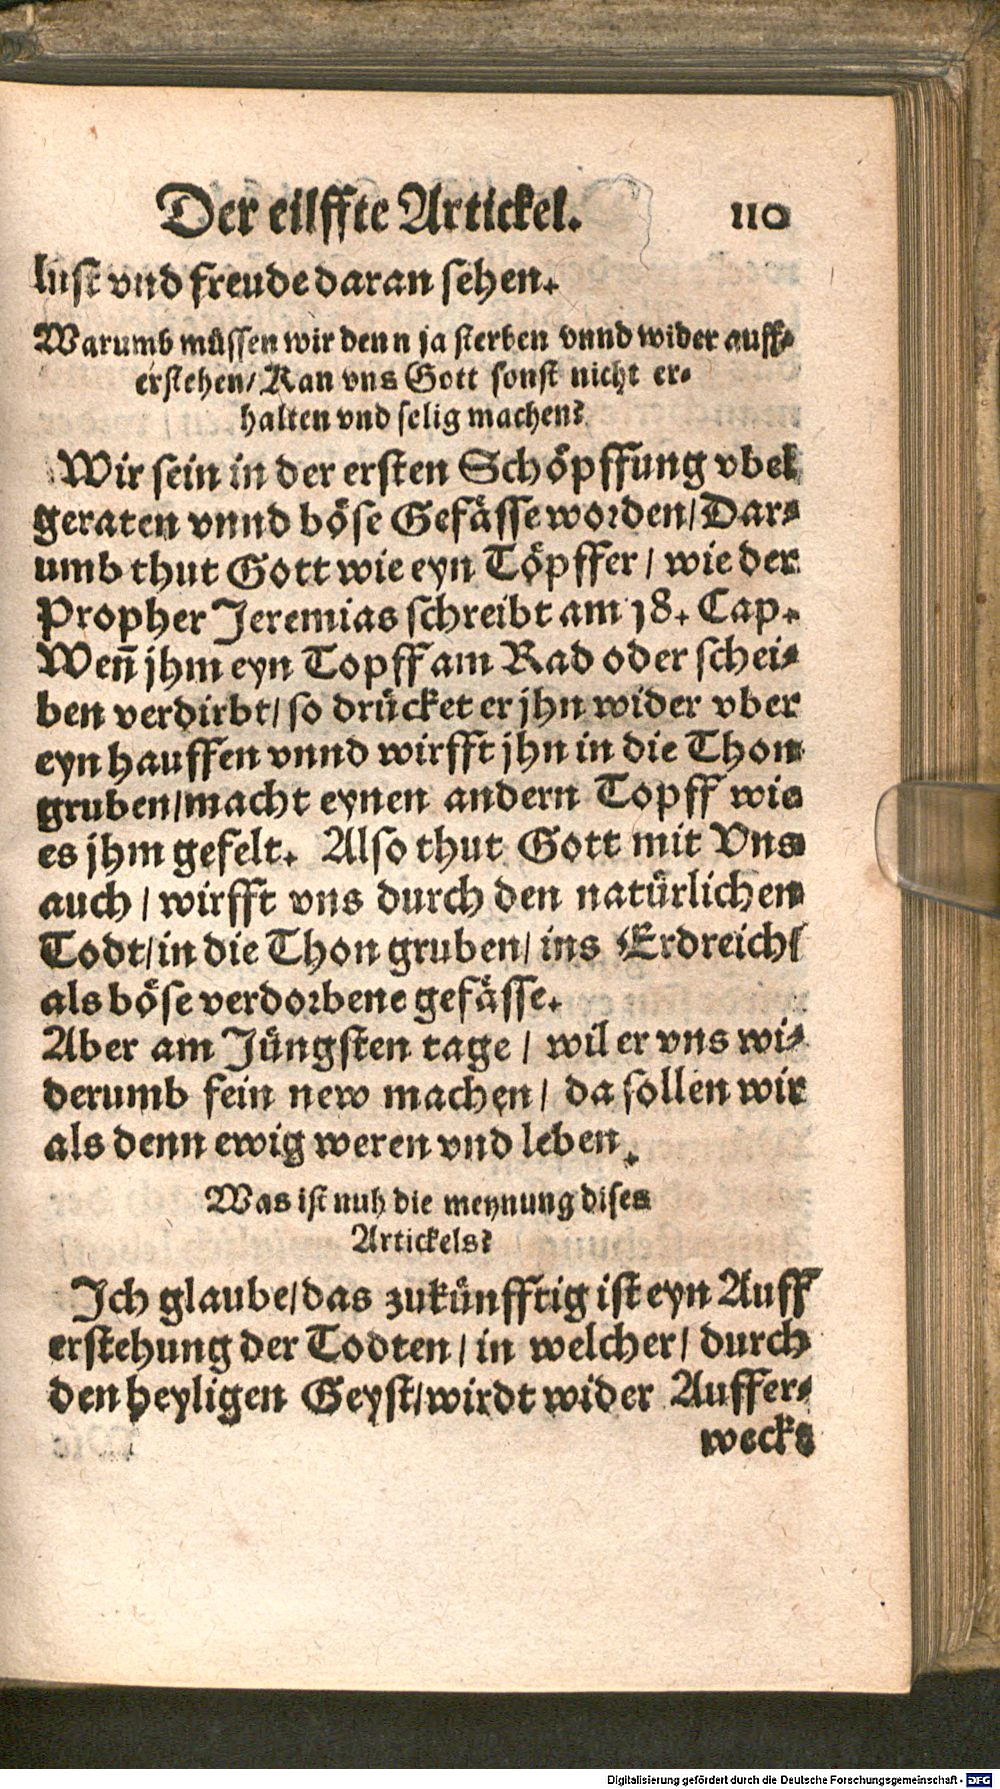 Der eilffte Artickel. 110
lust vnd freude daran sehen.
Warumb müssen wir denn ja sterben vnnd wider auff-
erstehen/ Kan vns Gott sonst nicht er-
halten vnd selig machen?
Wir sein in der ersten Schöpffung vbel
geraten vnnd böse Gefässe worden/ Dar-
umb thut Gott wie eyn Töpffer / wie der
Propher Jeremias schreibt am 18. Cap.
Weñ jhm eyn Topff am Rad oder schei-
ben verdirbt/ so drücket er jhn wider vber
eyn hauffen vnnd wirfft jhn in die Thon
gruben/macht eynen andern Topff wie
es jhm gefelt. Also thut Gott mit Vns
auch / wirfft vns durch den natürlichen
Todt/in die Thon gruben/ ins Erdreich/
als böse verdorbene gefässe.
Aber am Jüngsten tage / wil er vns wi-
derumb fein new machen/ da sollen wir
als denn ewig weren vnd leben.
Was ist nuh die meynung dises
Artickels?
Ich glaube/das zukünfftig ist eyn Auff
erstehung der Todten / in welcher/ durch
den heyligen Geyst/wirdt wider Auffer-
wecks
Digitalisierung gefördert durch die Deutsche Forschungsgemeinschaft - DFG